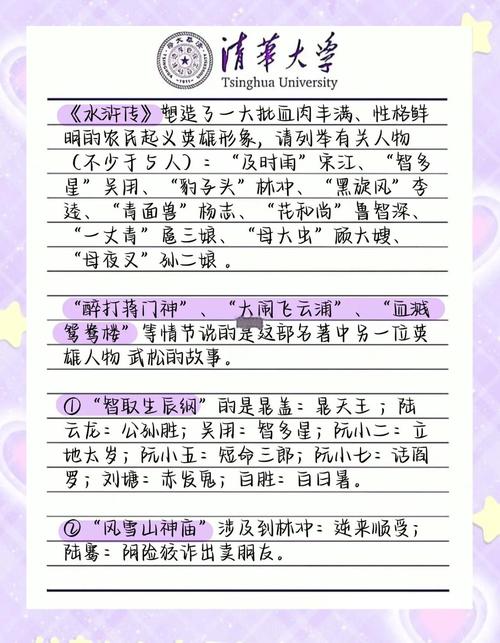 清华大学
Tsinghua University
《水浒传》塑造了一大批血肉丰满、性格鲜
明的农民起义英雄形象，请列举有关人物
（不少于5人）：“及时雨”宋江、“智多
星”吴用、“豹子头”林冲、“黑旋风”李
逵、“青面兽”杨志、“花和尚”鲁智深、
“一丈青”扈三娘、“母大虫”顾大嫂、
“母夜叉”孙二娘。
“醉打蒋门神”、“大闹飞云浦”、“血溅
鸳鸯楼”等情节说的是这部名著中另一位英
雄人物 武松的故事。
①“智取生辰纲”的是晁盖：晁天王；陆
云龙：公孙胜；吴用：智多星；阮小二：立
地太岁；阮小五：短命三郎；阮小七：活阎
罗；刘塘：赤发鬼；白胜：白日暑。
②“风雪山神庙”涉及到林冲：逆来顺受；
陆骞：阴险狡诈出卖朋友。